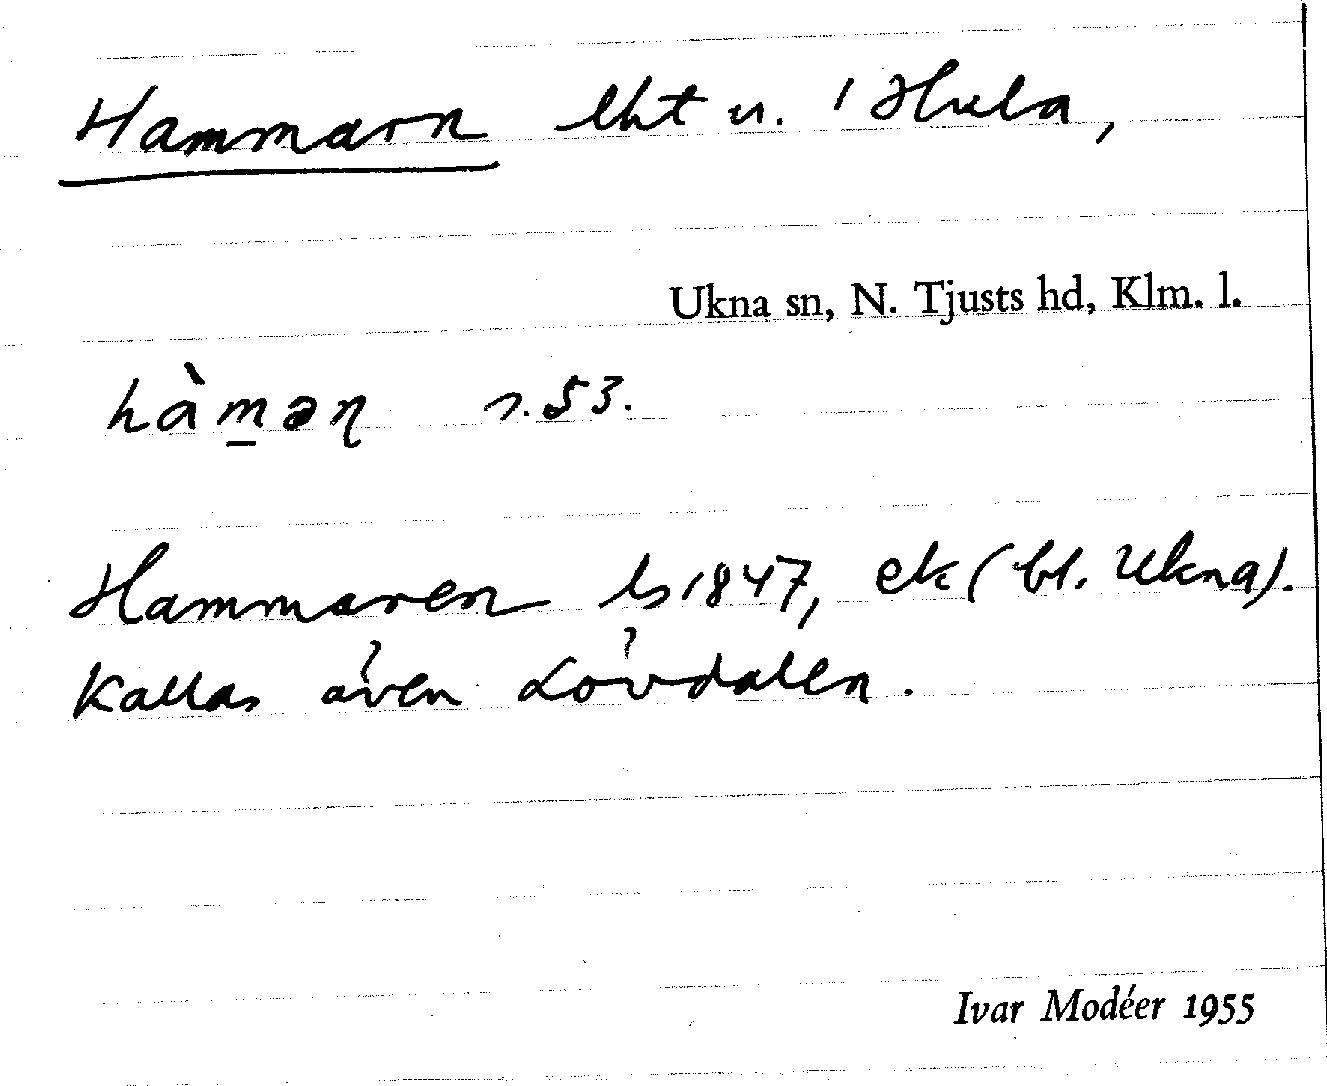 Hammarn lht u. 1 Hula,
Ukna sn, N. Tjusts hd, Klm. l.
hàm̲əɳ s. 53.
Hammaren ls 1847, ek (bl. Ukna).
Kallas även Lövdalen.
Ivar Modéer 1955